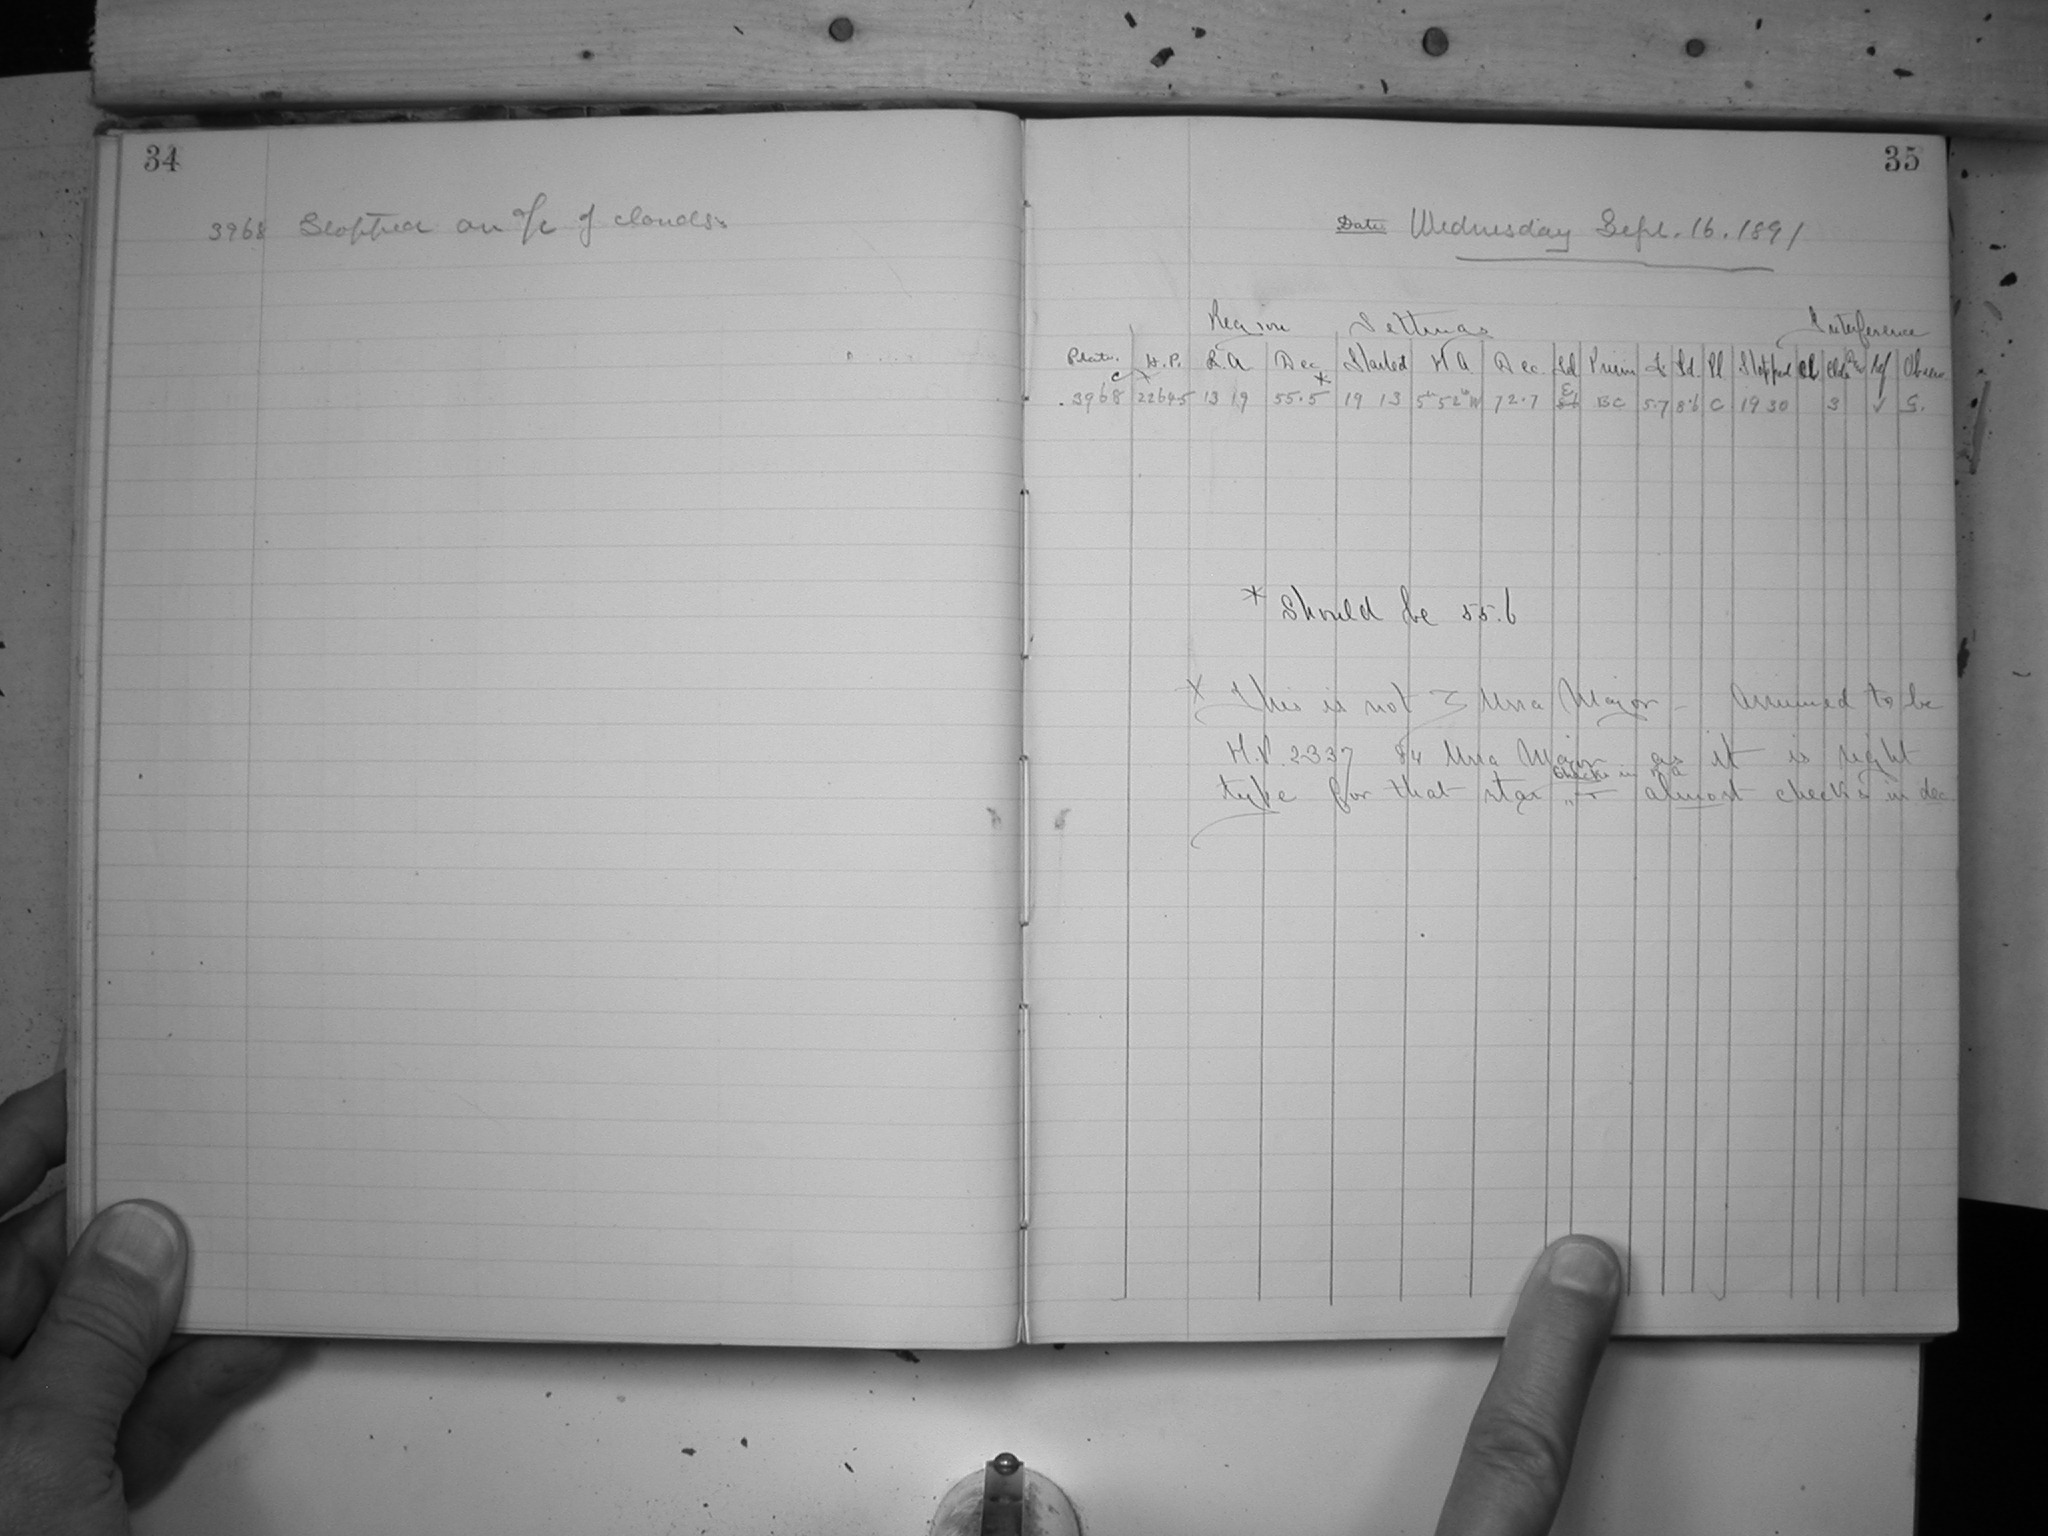 34
3968 Stopped on a/c of clouds.
35
Date Wednesday Sept. 16. 1891
Region Settings Interference
Plate. H.P. R.A Dec Started H A Dec. Sd Prism S. Sd. Pl Stopped Cl Clds Ref Observ
C × *
3968 2264-5 13 19 55.5 19 13 5h 52m W 72.7 E BC 5.7 8.6 C 19 30 3 ✓ G.
* Should be 55.6
× This is not ζ Ursa Major - assumed to be
H.P. 2337 84 Ursa Major as it is right
checks in RA
type for that star almost checks in dec.